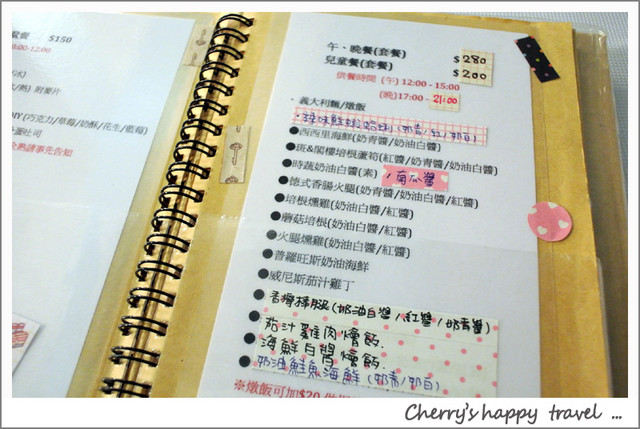 餐 $150
8:00-12:00
/熱) 附薯片
DIY (巧克力/草莓/奶酥/花生/藍莓)
吐司
熟請事先告知
午、晚餐(套餐) $280
兒童餐(套餐) $200
供餐時間 (午) 12:00 - 15:00
(晚)17:00 - 21:00
·義大利麵/燉飯
(奶青/紅/奶白)
●西西里海鮮(奶青醬/奶油白醬)
●斑&閣樓培根蘆筍(紅醬/奶青醬/奶油白醬)
●時蔬奶油白醬(素) /南瓜醬
●德式香腸火腿(奶青醬/奶油白醬/紅醬)
●培根燻雞(奶油白醬/紅醬)
●蘑菇培根(奶油白醬/紅醬)
●火腿燻雞(奶油白醬/紅醬)
●普羅旺斯奶油海鮮
●威尼斯茄汁雞丁
●香檸豬腿(奶油白醬/紅醬/奶青醬)
●茄汁雞肉燴飯.
●海鮮白醬燴飯.
●奶油鮭魚海鮮(奶青/奶白)
※燉飯可加$20
Cherry's happy travel ...